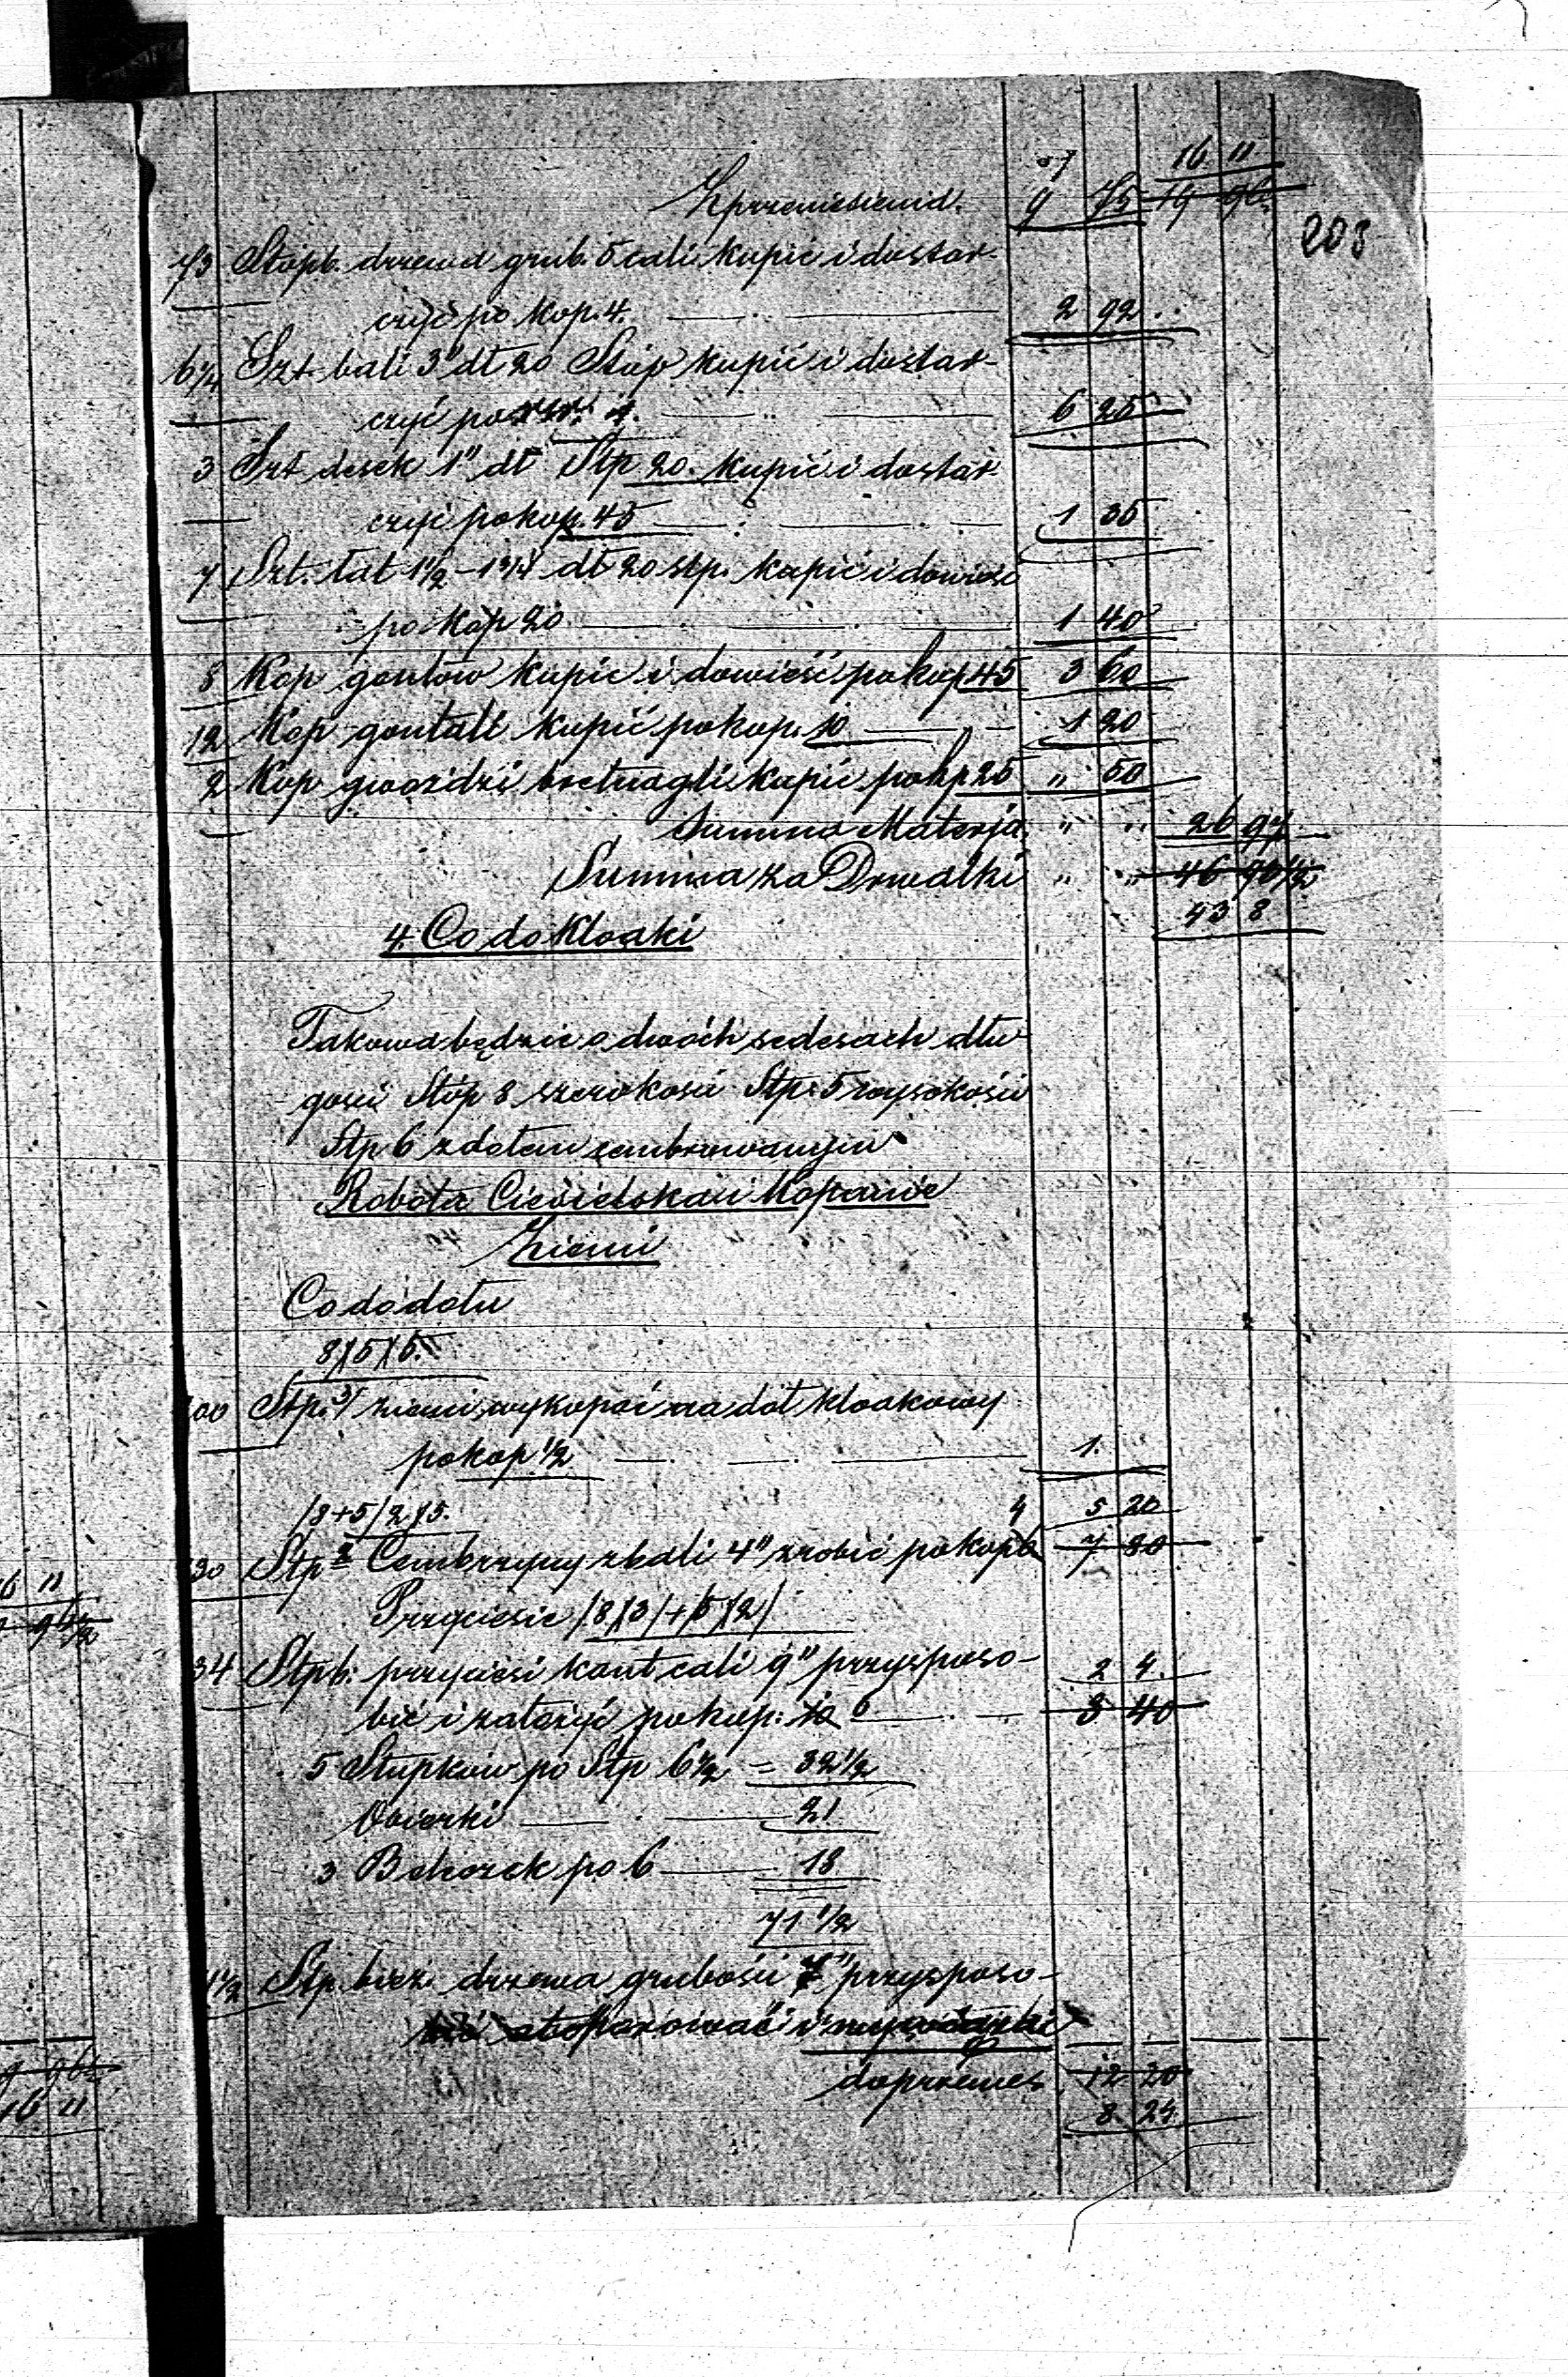 16 11
Z przeniesienia. 9 75 19 96
203
73 Stóp b. drzewa grub. 5 cali kupić i dostar-
czyć po kop. 4. 2 92
6 1/4 Szt. bali 3" dł 20 Stóp kupić i dostar-
czyć po rsr. 1. 6 25
3 Szt desek 1" dł Stp 20. kupić i dostar
czyć po kop. 45 1 35
7 Szt. łat 1 1/2 – 1 3/4 dł 20 stp. kupić i dowieść
po kop 20 1 40
8 Kop gontów kupić i dowieść po kop 45 3 60
12 Kop gontali kupić po kop. 10 1 20
2 Kop gwoździ bretnagli kupić po kp 25 " 50
Summa Materja. " " 26 97
Summa za Drwalki " " 46 90 1/2
43 8
4. Co do Kloaki
Takowa będzie o dwóch sedesach dłu-
gości Stóp 8 szerokości Stp. 5 wysokości
Stp 6 z dołem cembrowanym
Robota Ciesielska i Kopanie
Ziemi
Co do dołu
8)(5)(5.
200 Stp. 3/ ziemi wykopać na dół kloakowy
po kop 1/2 1.
/8+5/2)(5. 4 5 20
130 Stp 2 Cembrzyny z bali 4" zrobić po kop 6 7 80
Przyciesie /8)(3/+/5)(2/
34 Stp b: przyciesi kant cali 9" przysposo- 2 4
bić i założyć po kop: 10 6 3 40
5 Słupków po Stp 6 1/2 = 32 1/2
Oczerki 21
3 Beleczek po 6 18
71 1/2
71 1/2 Stp. bież. drzewa grubości 7" przysposo-
doprzenies 12 20
8 24